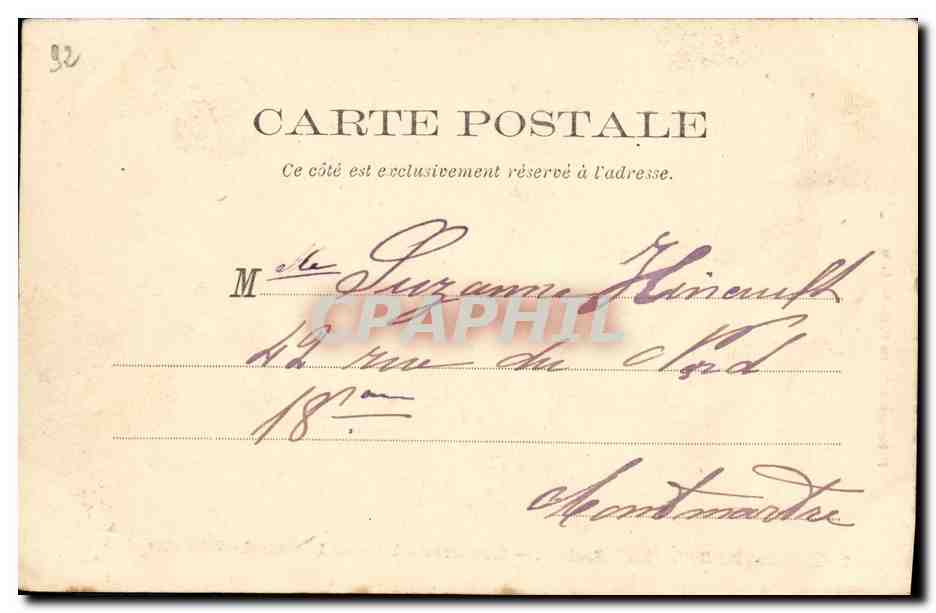 92
CARTE POSTALE
Ce côté est exclusivement réservé à l'adresse.
Mlle Suzanne Hinault
CPAPHIL
42 rue du Nord
18ème
Montmartre